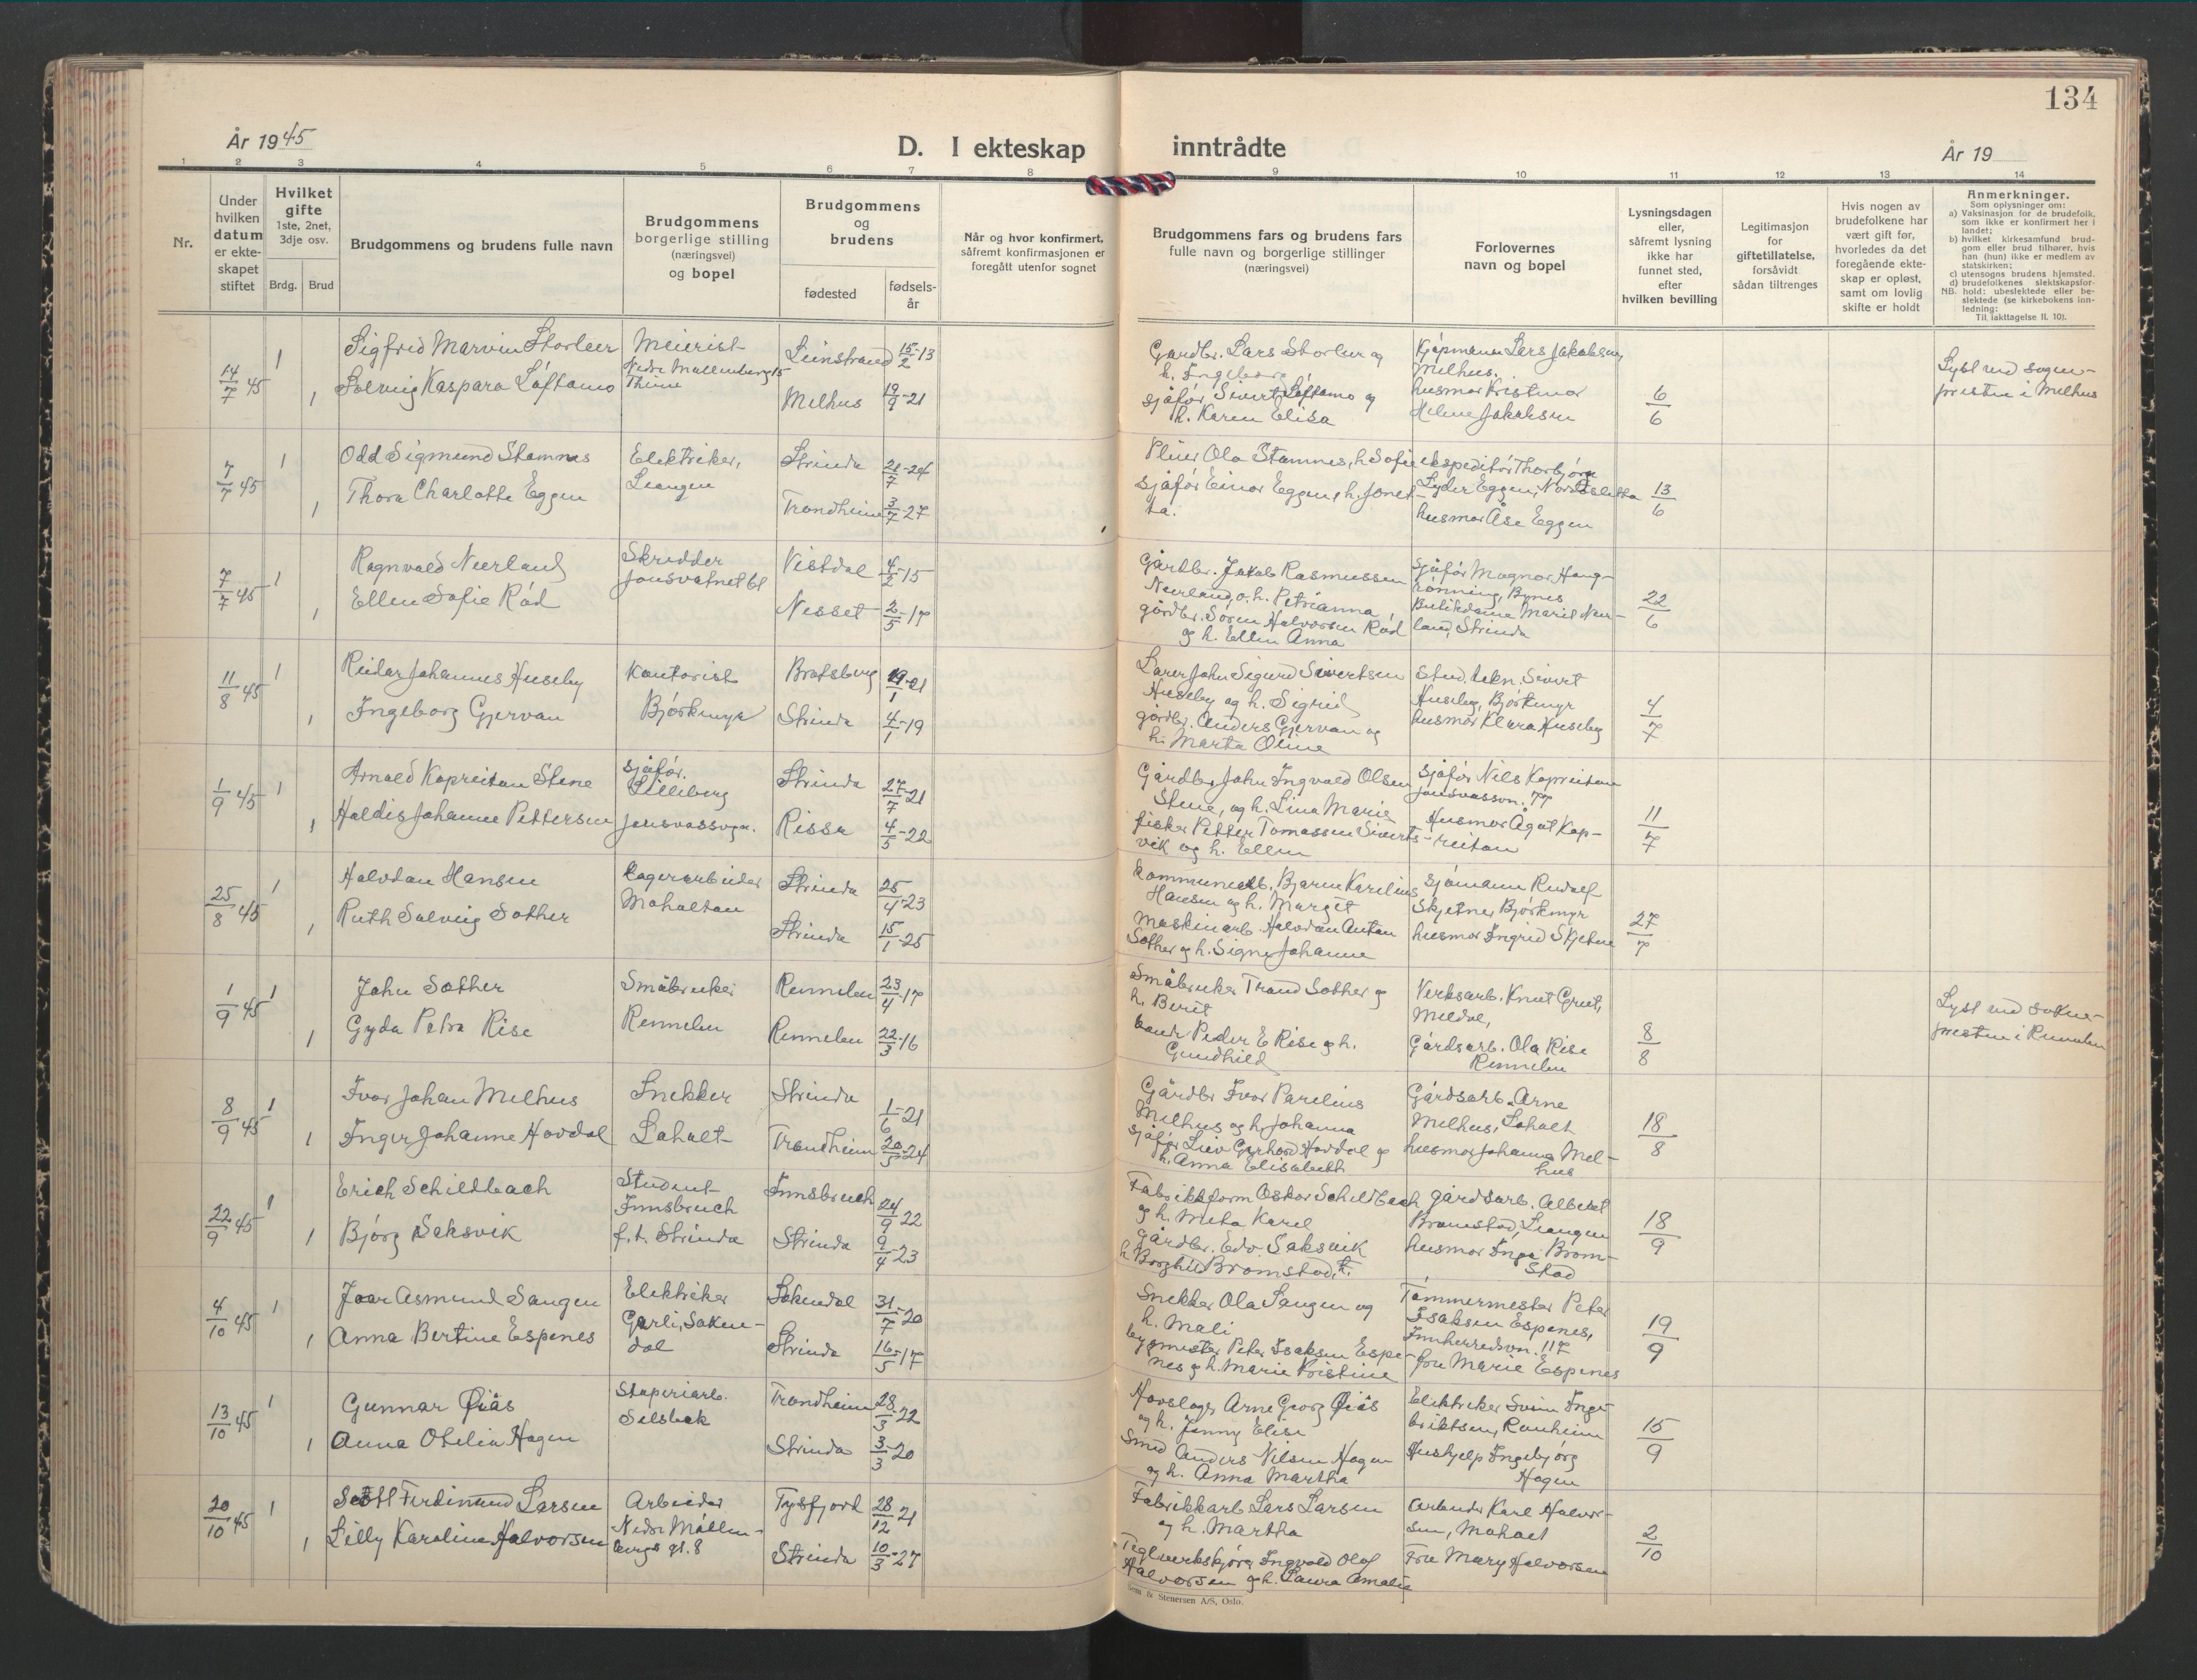 134
År 1945
D. I ekteskap inntrådte
År 19
1 2 3 4 5 6 7 8 9 10 11 12 13 14
Nr.
Under hvilken datum er ekte-skapet stiftet
Hvilket gifte
1ste, 2net, 3dje osv.
Brdg. Brud
Brudgommens og brudens fulle navn
Brudgommens borgerlige stilling (næringsvei) og bopel
Brudgommens og brudens
fødested
fødsels-år
Når og hvor konfirmert, såfremt konfirmasjonen er foregått utenfor sognet
Brudgommens fars og brudens fars fulle navn og borgerlige stillinger (næringsvei)
Forlovernes navn og bopel
Lysningsdagen eller, såfremt lysning ikke har funnet sted, efter hvilken bevilling
Legitimasjon for giftetillatelse, forsåvidt sådan tiltrenges
Hvis nogen av brudefolkene har vært gift før, hvorledes da det foregående ekte-skap er opløst, samt om lovlig skifte er holdt
Anmerkninger.
Som oplysninger om:
a) Vaksinasjon for de brudefolk, som ikke er konfirmert her i landet;
b) hvilket kirkesamfund brud-gom eller brud tilhører, hvis han (hun) ikke er medlem av statskirken;
c) utensogns brudens hjemsted.
d) brudefolkenes slektskapsfor-hold: ubeslektede eller be-slektede (se kirkebokens inn-ledning:
NB.
Til iakttagelse II. 10).
14/7 45 1 Sigfrid Marvin Storleer Meierist Leinstrand 15/2-13
Nedre Møllenberg 15
1 Solveig Kaspara Løftamo Melhus 19/9-21
Gardbr. Lars Storler og
h. Ingeborg
sjåfør Sivert Løftamo og
h. Karen Elisa
Kjøpmann Lars Jakobsen
Melhus.
husmor Kristmor
Helene Jakobsen
6/6
Lyst ved sogne-
presten i Melhus
7/7 45 1 Odd Sigmund Stamnes Elektriker, Strinda 21/7-24
1 Thora Charlotte Eggen Leangen Trondheim 3/7-27
Ola Stamnes, h Sofie
sjåfør Einar Eggen, h. Jonet-
ta.
ekspeditør Thorbjørn
Lyder Eggen, Nordsletta
husmor Åse Eggen
13/6
7/7 45 1 Ragnvald Neerland Skredder Vistdal 4/2-15
Jonsvatnet bl
1 Ellen Sofie Rød Nesset 2/5-17
Gårdbr. Jakob Rasmussen
Neerland, o.h. Petrianna,
gårdbr. Søren Halvorsen Rød
og h. Ellen Anna
sjåfør Magnor Haug-
rønning, Bynes
Butikdame Marit Neer-
land, Strinda
22/6
11/8 45 1 Reidar Johannes Huseby Kontorist Bratsberg 19/1-21
1 Ingeborg Gjervan Bjørkmyr Strinda 4/1-19
Lærer John Sigurd Sivertsen
Huseby og h. Sigrid
gårdbr. Anders Gjervan og
h. Marta Oline
Stud. tekn. Sivert
Huseby, Bjørkmyr
husmor Klara Huseby
4/7
1/9 45 1 Arnold Kapreitan Stene sjåfør. Strinda 27/7-21
Lilleberg
1 Haldis Johanne Pettersen Jonsvassvgn. Rissa 4/5-22
Gårdbr John Ingvald Olsen
Stene, og h. Lina Marie
fisker Petter Tomassen Siverts-
vik og h. Ellen
sjåfør Nils Kapreitan
Jonsvassvn. 77
Husmor Ågot Kap-
reitan
11/7
25/8 45 1 Halvdan Hansen Lagerarbeider Strinda 25/4-23
Moholtan
1 Ruth Solveig Sother Strinda 15/1-25
Kommunearb. Bjarne Karelius
Hansen og h. Margit
Maskinarb. Halvdan Anton
Sother og h. Signe Johanne
Sjømann Rudolf
Skjetne, Bjørkmyr
husmor Ingrid Skjetne
27/7
1/9 45 1 John Sother Småbruker Rennebu 23/4-17
1 Gyda Petra Rise Rennebu Rennebu 22/3-16
Småbruker Trond Sother og
h. Berit
bonde Peder E Rise og h.
Gundhild
Verksarb. Knut Grut,
Meldal,
Gårdsarb. Ola Rise
Rennebu
8/8
Lyst ved sokne-
presten i Rennebu
8/9 45 1 Ivar Johan Melhus Snekker Strinda 1/6-21
1 Inger Johanne Hovdal Loholt Trondheim 20/5-24
Gårdbr Ivar Parelius
Melhus og h. Johanna
sjåfør Gerhard Hovdal og
h. Anna Elisabeth
Gårdsarb. Arne
Melhus, Loholt
husmor Johanna Mel-
hus
18/8
22/9 45 1 Erich Schildbach Student Innsbruch 24/9 22
Innsbruch
1 Bjørg Saksvik f.t. Strinda Strinda 9/4-23
Fabrikkform Oskar Schildbach
og h. Meta Karel
gårdbr. Edv. Saksvik
h Borghild Bromstad, f.
gårdsarb. Albert
Bromstad, Leangen
husmor Inga Brom-
stad
18/9
4/10 45 1 Ivar Asmund Saugen Elektriker Soknedal 31/7-20
Garli, Sokne-
1 Anna Bertine Espenes dal Strinda 16/5-17
Snekker Ola Saugen og
h. Mali
bygmester Peter Isaksen Espe-
nes og h. Marie Kristine
Tømmermester Peter
Isaksen Espenes,
Innherredsvn. 117
fru Marie Espenes
19/9
13/10 45 1 Gunnar Øiås Støperiarb. Trondheim 28/3-22
Selsbak
1 Anna Otelia Hagen Strinda 3/3-20
Hovslager Arne Georg Øiås
og h. Jenny Elise
Smed Anders Nilsen Hagen
og h. Anna Martha
Elektriker Svein Inge-
briktsen, Ranheim
Hushjelp Ingebjørg
Hagen
15/9
20/10 45 1 Ferdinand Larsen Arbeider Tysfjord 28/12 21
Nedre Møllen-
1 Lilly Karoline Halvorsen bergs gt. 8 Strinda 10/3-27
Fabrikkarb Lars Larsen
og h. Martha
Teglverkskjører Ingvald Olaf
Halvorsen og h. Laura Amalie
Arbeider Karl Halvor-
sen, Moholt
Fru Mary Halvorsen
2/10
Stenersen A/S, Oslo.